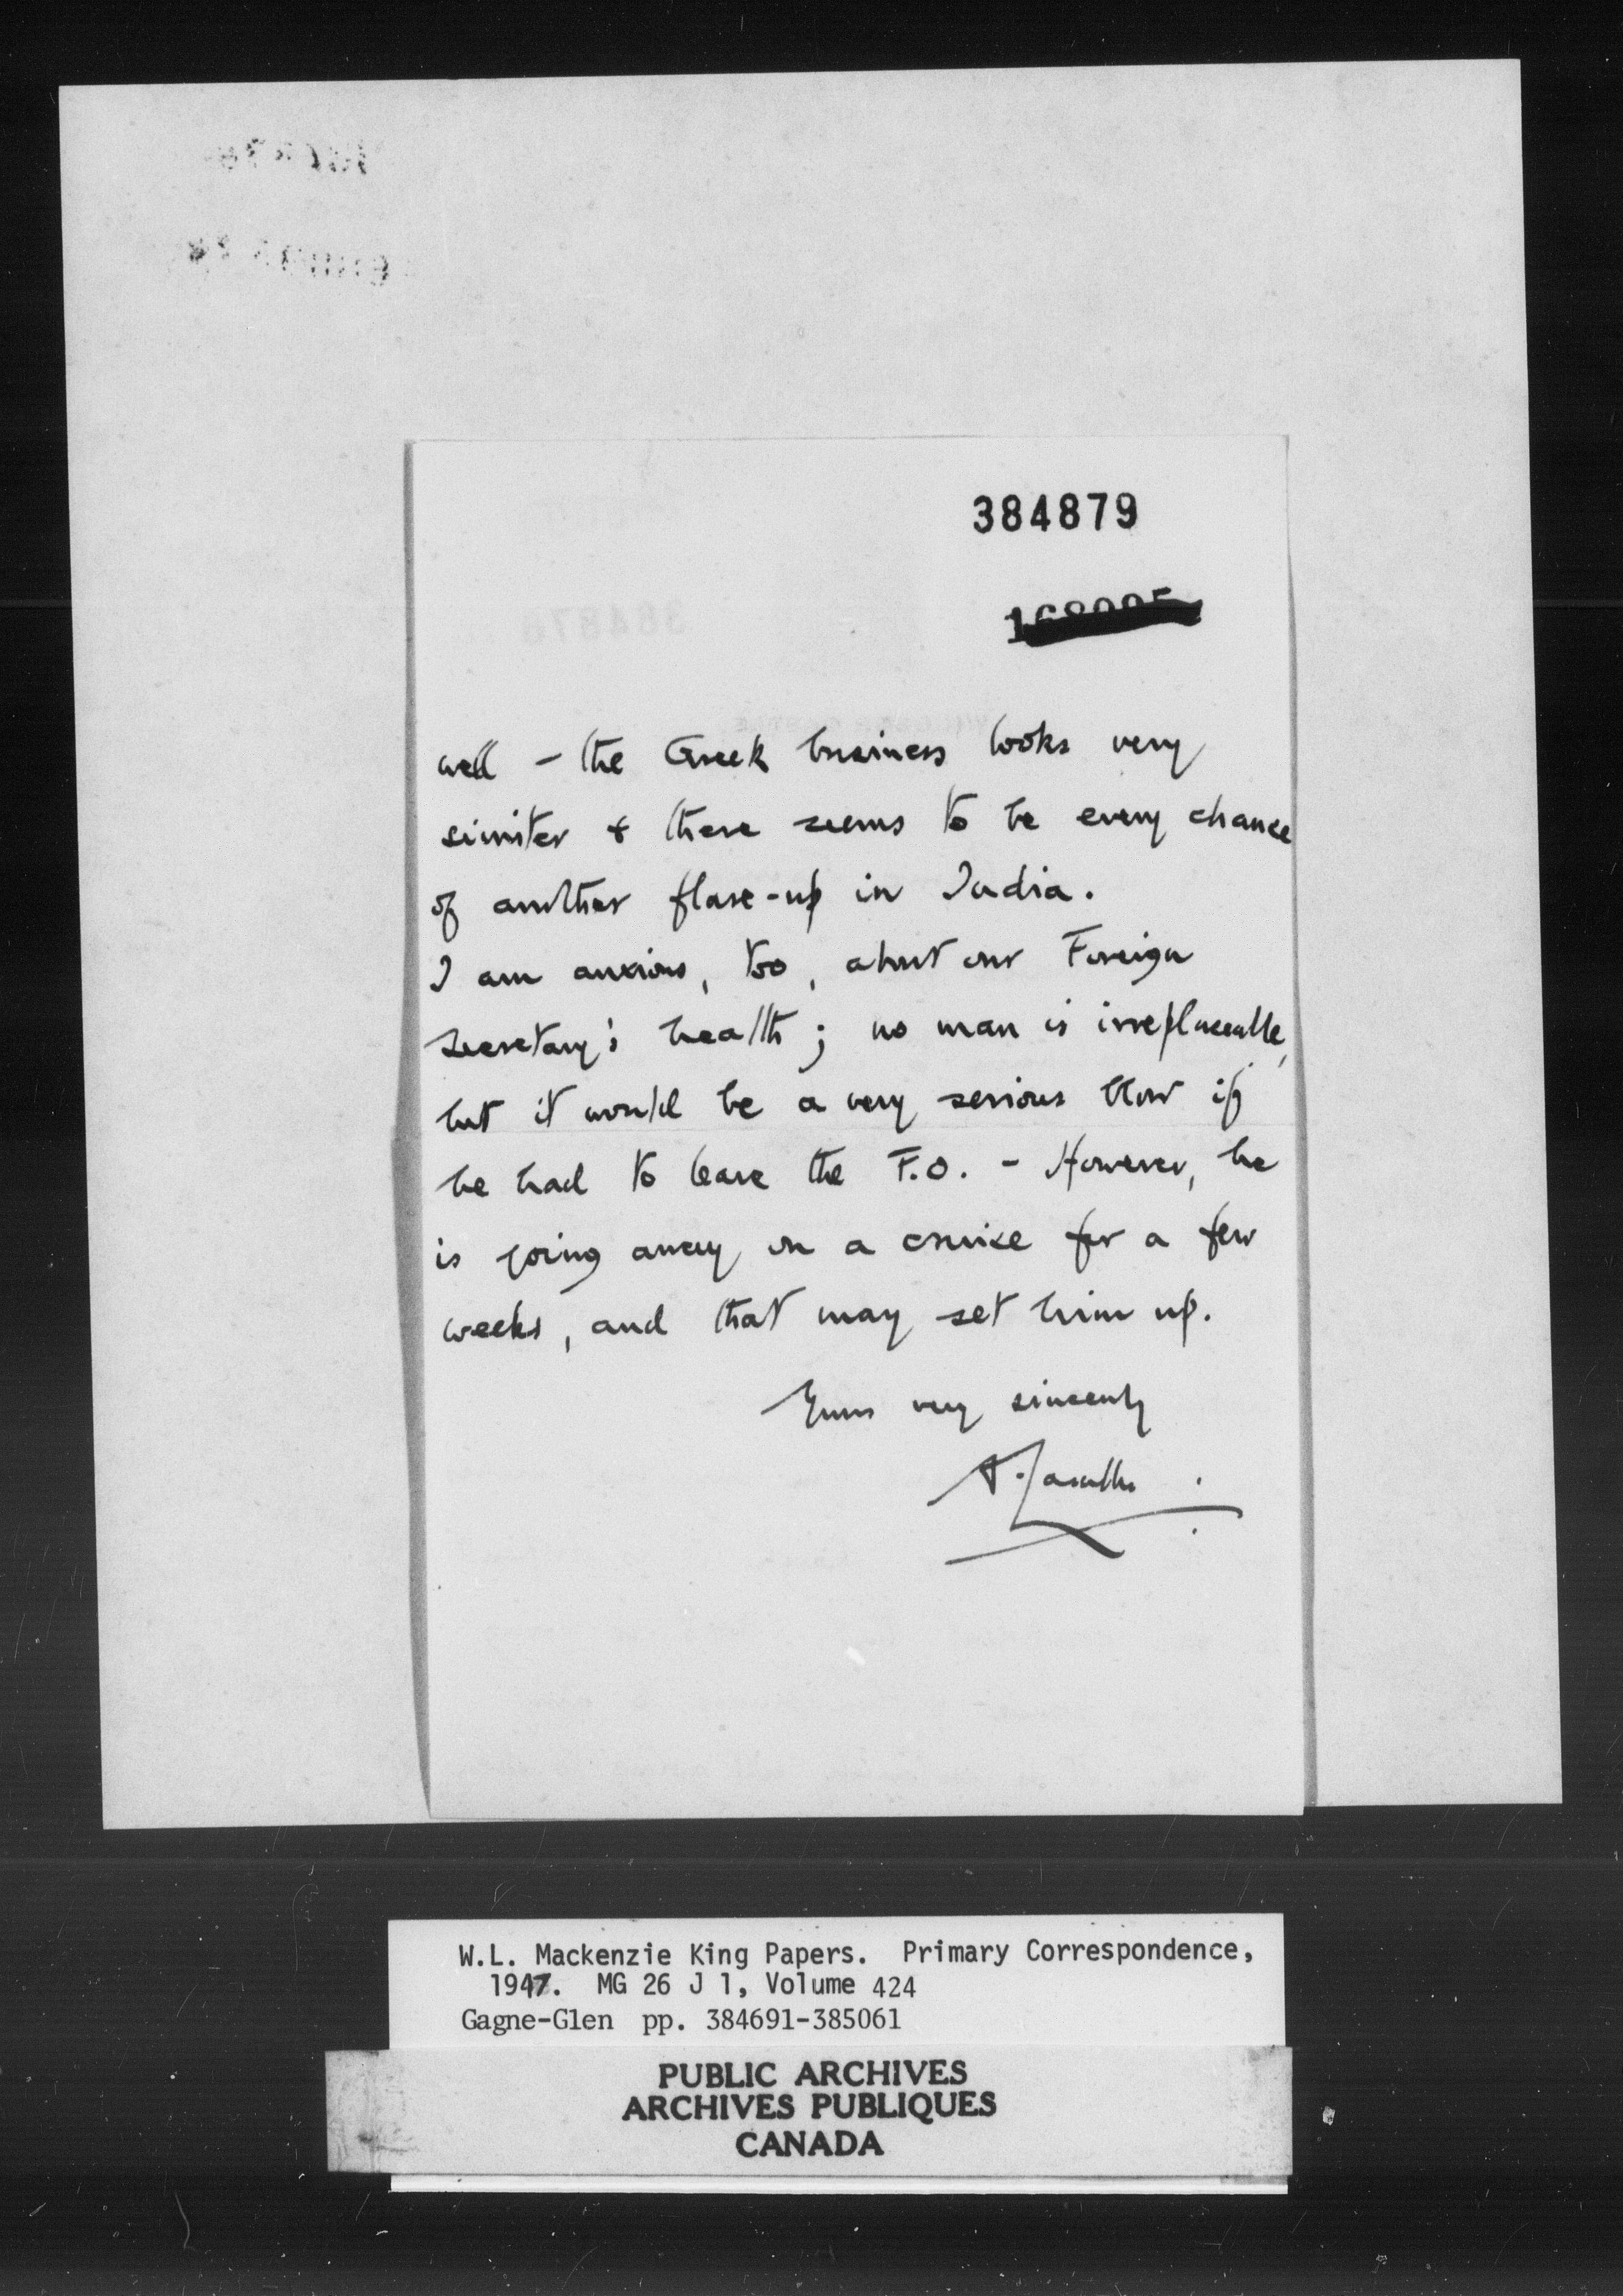 384879
well - the Greek business looks very
sinister & there seems to be every chance
of another flare-up in India.
I am anxious, too, about our Foreign
Secretary's health; no man is irreplaceable,
but it would be a very serious blow if
he had to leave the F.O. - However, he
is going away on a cruise for a few
weeks, and that may set him up.
Yours very sincerely
W.L. Mackenzie King Papers. Primary Correspondence,
1947. MG 26 J 1, Volume 424
Gagne-Glen pp. 384691-385061
PUBLIC ARCHIVES
ARCHIVES PUBLIQUES
CANADA